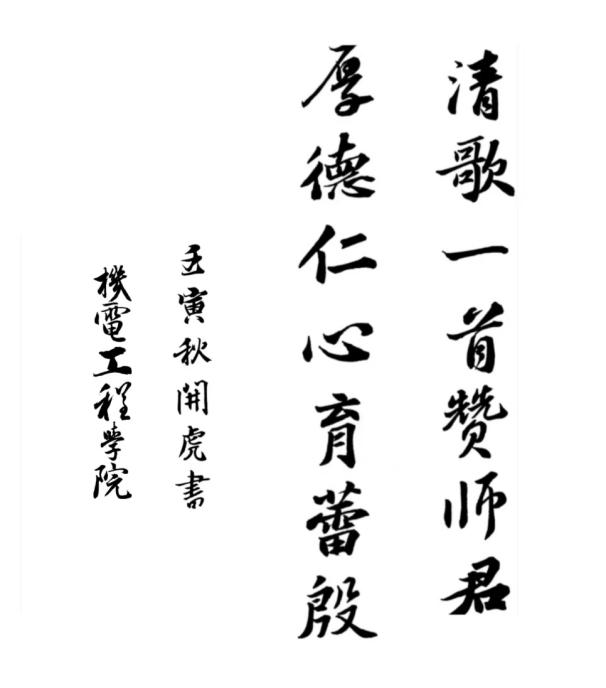 清歌一首赞师君
厚德仁心育蕾殷
壬寅秋開虎書
機電工程學院